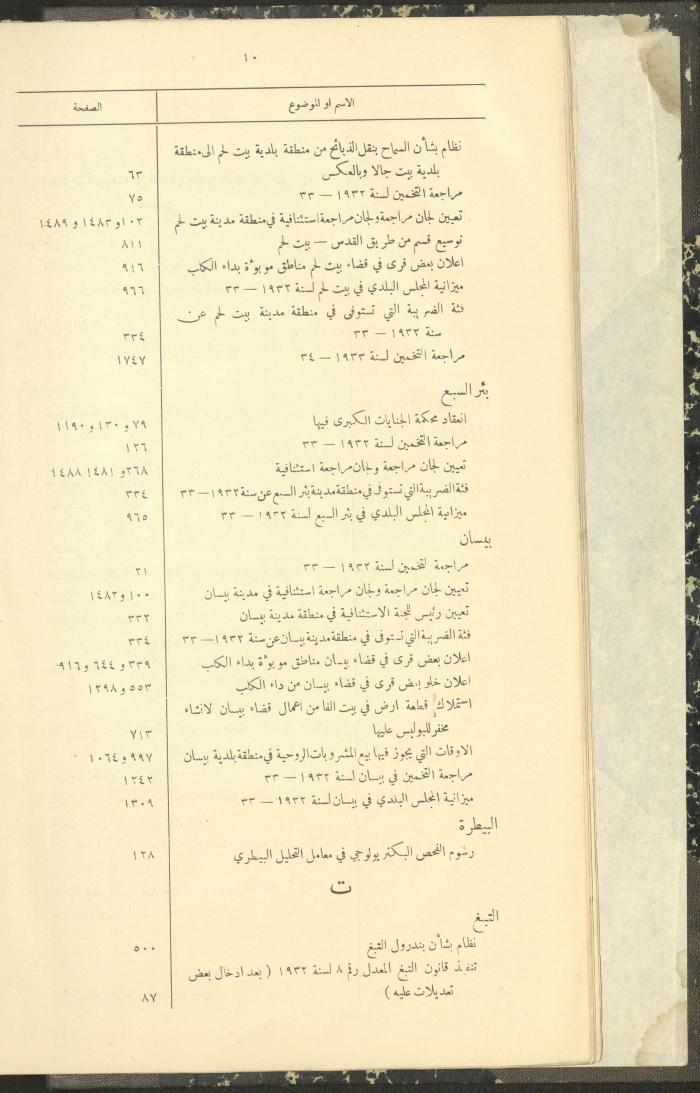 ١٠
الاسم او الموضوع الصفحة
نظام بشأن السماح بنقل الذبائح من منطقة بلدية بيت لحم الى منطقة
بلدية بيت جالا وبالعكس ٦٣
مراجعة التخمين لسنة ١٩٣٢ — ٣٣ ٧٥
تعيين لجان مراجعة ولجان مراجعة استئنافية في منطقة مدينة بيت لحم ١٠٢ و ١٤٨٣ و ١٤٨٩
توسيع قسم من طريق القدس — بيت لحم ٨١١
اعلان بعض قرى في قضاء بيت لحم مناطق موبوءة بداء الكلب ٩١٦
ميزانية المجلس البلدي في بيت لحم لسنة ١٩٣٢ — ٣٣ ٩٦٦
فئة الضريبة التي تستوفى في منطقة مدينة بيت لحم عن
سنة ١٩٣٢ — ٣٣ ٣٣٤
مراجعة التخمين لسنة ١٩٣٣ — ٣٤ ١٧٤٧
بئر السبع
انعقاد محكمة الجنايات الكبرى فيها ٧٩ و ١٣٠ و ١١٩٠
مراجعة التخمين لسنة ١٩٣٢ — ٣٣ ١٢٦
تعيين لجان مراجعة ولجان مراجعة استئنافية ٢٦٨ و ١٤٨١ ١٤٨٨
فئة الضريبة التي تستوفى في منطقة مدينة بئر السبع عن سنة ١٩٣٢ — ٣٣ ٣٣٤
ميزانية المجلس البلدي في بئر السبع لسنة ١٩٣٢ — ٣٣ ٩٦٥
بيسان
مراجعة لتخمين لسنة ١٩٣٢ — ٣٣ ٢١
تعيين لجان مراجعة ولجان مراجعة استئنافية في مدينة بيسان ١٠٠ و ١٤٨٢
تعيين رئيس للجنة الاستئنافية في منطقة مدينة بيسان ٣٣٢
فئة الضريبة التي تستوفى في منطقة مدينة بيسان عن سنة ١٩٣٢ — ٣٣ ٣٣٤
اعلان بعض قرى في قضاء بيسان مناطق موبوءة بداء الكلب ٣٣٩ و ٦٤٤ و ٩١٦
اعلان خلو بعض قرى في قضاء بيسان من داء الكلب ٥٥٣ و ١٢٩٨
استملاك قطعة ارض في بيت الفا من اعمال قضاء بيسان لانشاء
مخفر للبوليس عليها ٧١٣
الاوقات التي يجوز فيها بيع المشروبات الروحية في منطقة بلدية بيسان ٩٩٧ و ١٠٦٤
مراجعة التخمين في بيسان لسنة ١٩٣٢ — ٣٣ ١٢٤٢
ميزانية المجلس البلدي في بيسان لسنة ١٩٣٢ — ٣٣ ١٣٠٩
البيطرة
رسوم الفحص البكتريولوجي في معامل التحليل البيطري ١٢٨
ت
التبغ
نظام بشأن بندرول التبغ ٥٠٠
تنفيذ قانون التبغ المعدل رقم ٨ لسنة ١٩٣٢ ( بعد ادخال بعض
تعديلات عليه ) ٨٧